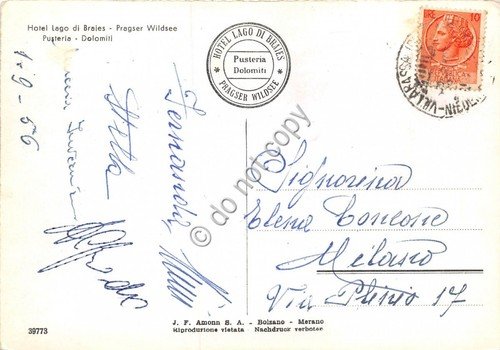 Hotel Lago di Braies - Pragser Wildsee
Pusteria - Dolomiti
HOTEL LAGO DI BRAIES
Pusteria
Dolomiti
PRAGSER WILDSEE
LIRE 10
1-9-56
Stella
Fernando
Alfredo
Signorina
Elena
Milano
Via Plinio 17
do not copy
J. F. Amonn S. A. - Bolzano - Merano
Riproduzione vietata Nachdruck verboten
39773